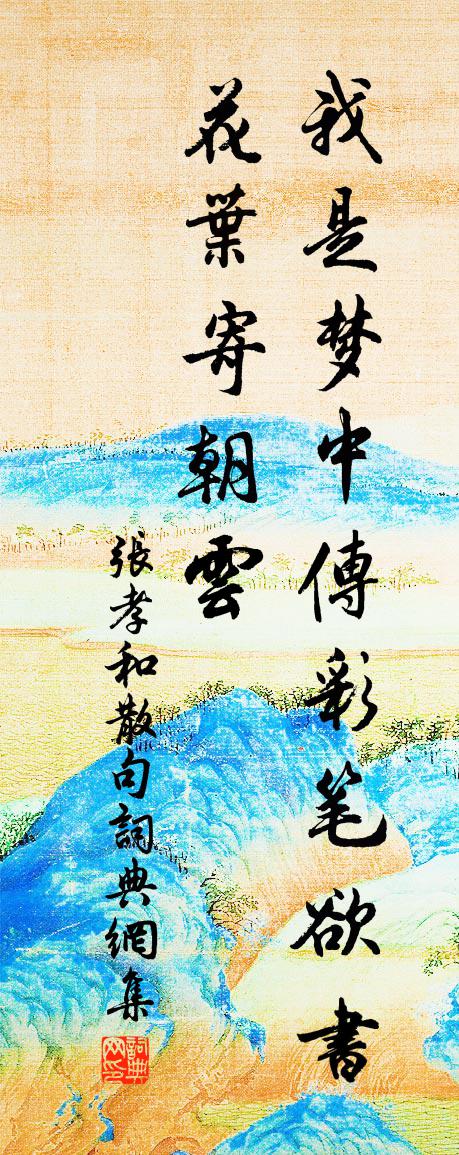 我是梦中傳彩笔欲書
花葉寄朝雲
張孝和散句詞典網集
詞典網印